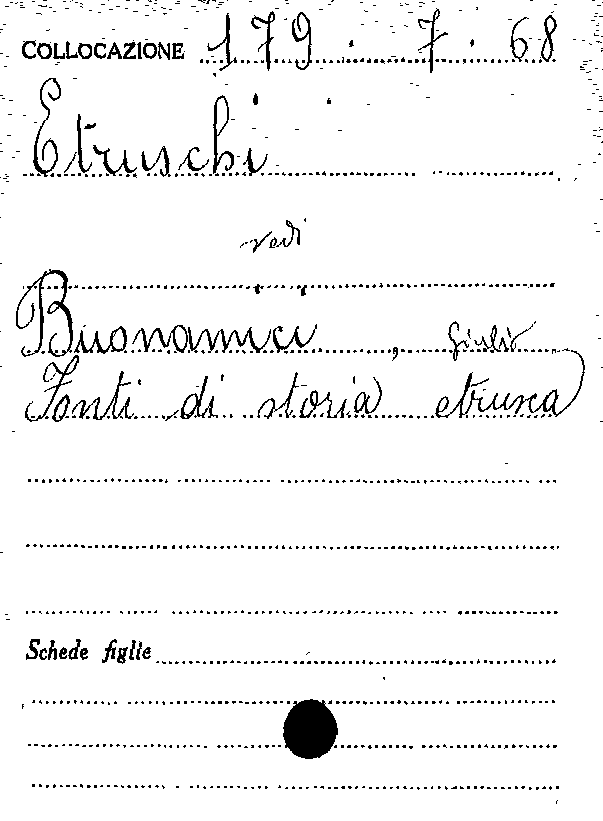 COLLOCAZIONE 179 . 7 . 68
Etruschi
vedi
Buonamici , Giulio
Fonti di storia etrusca
Schede figlie